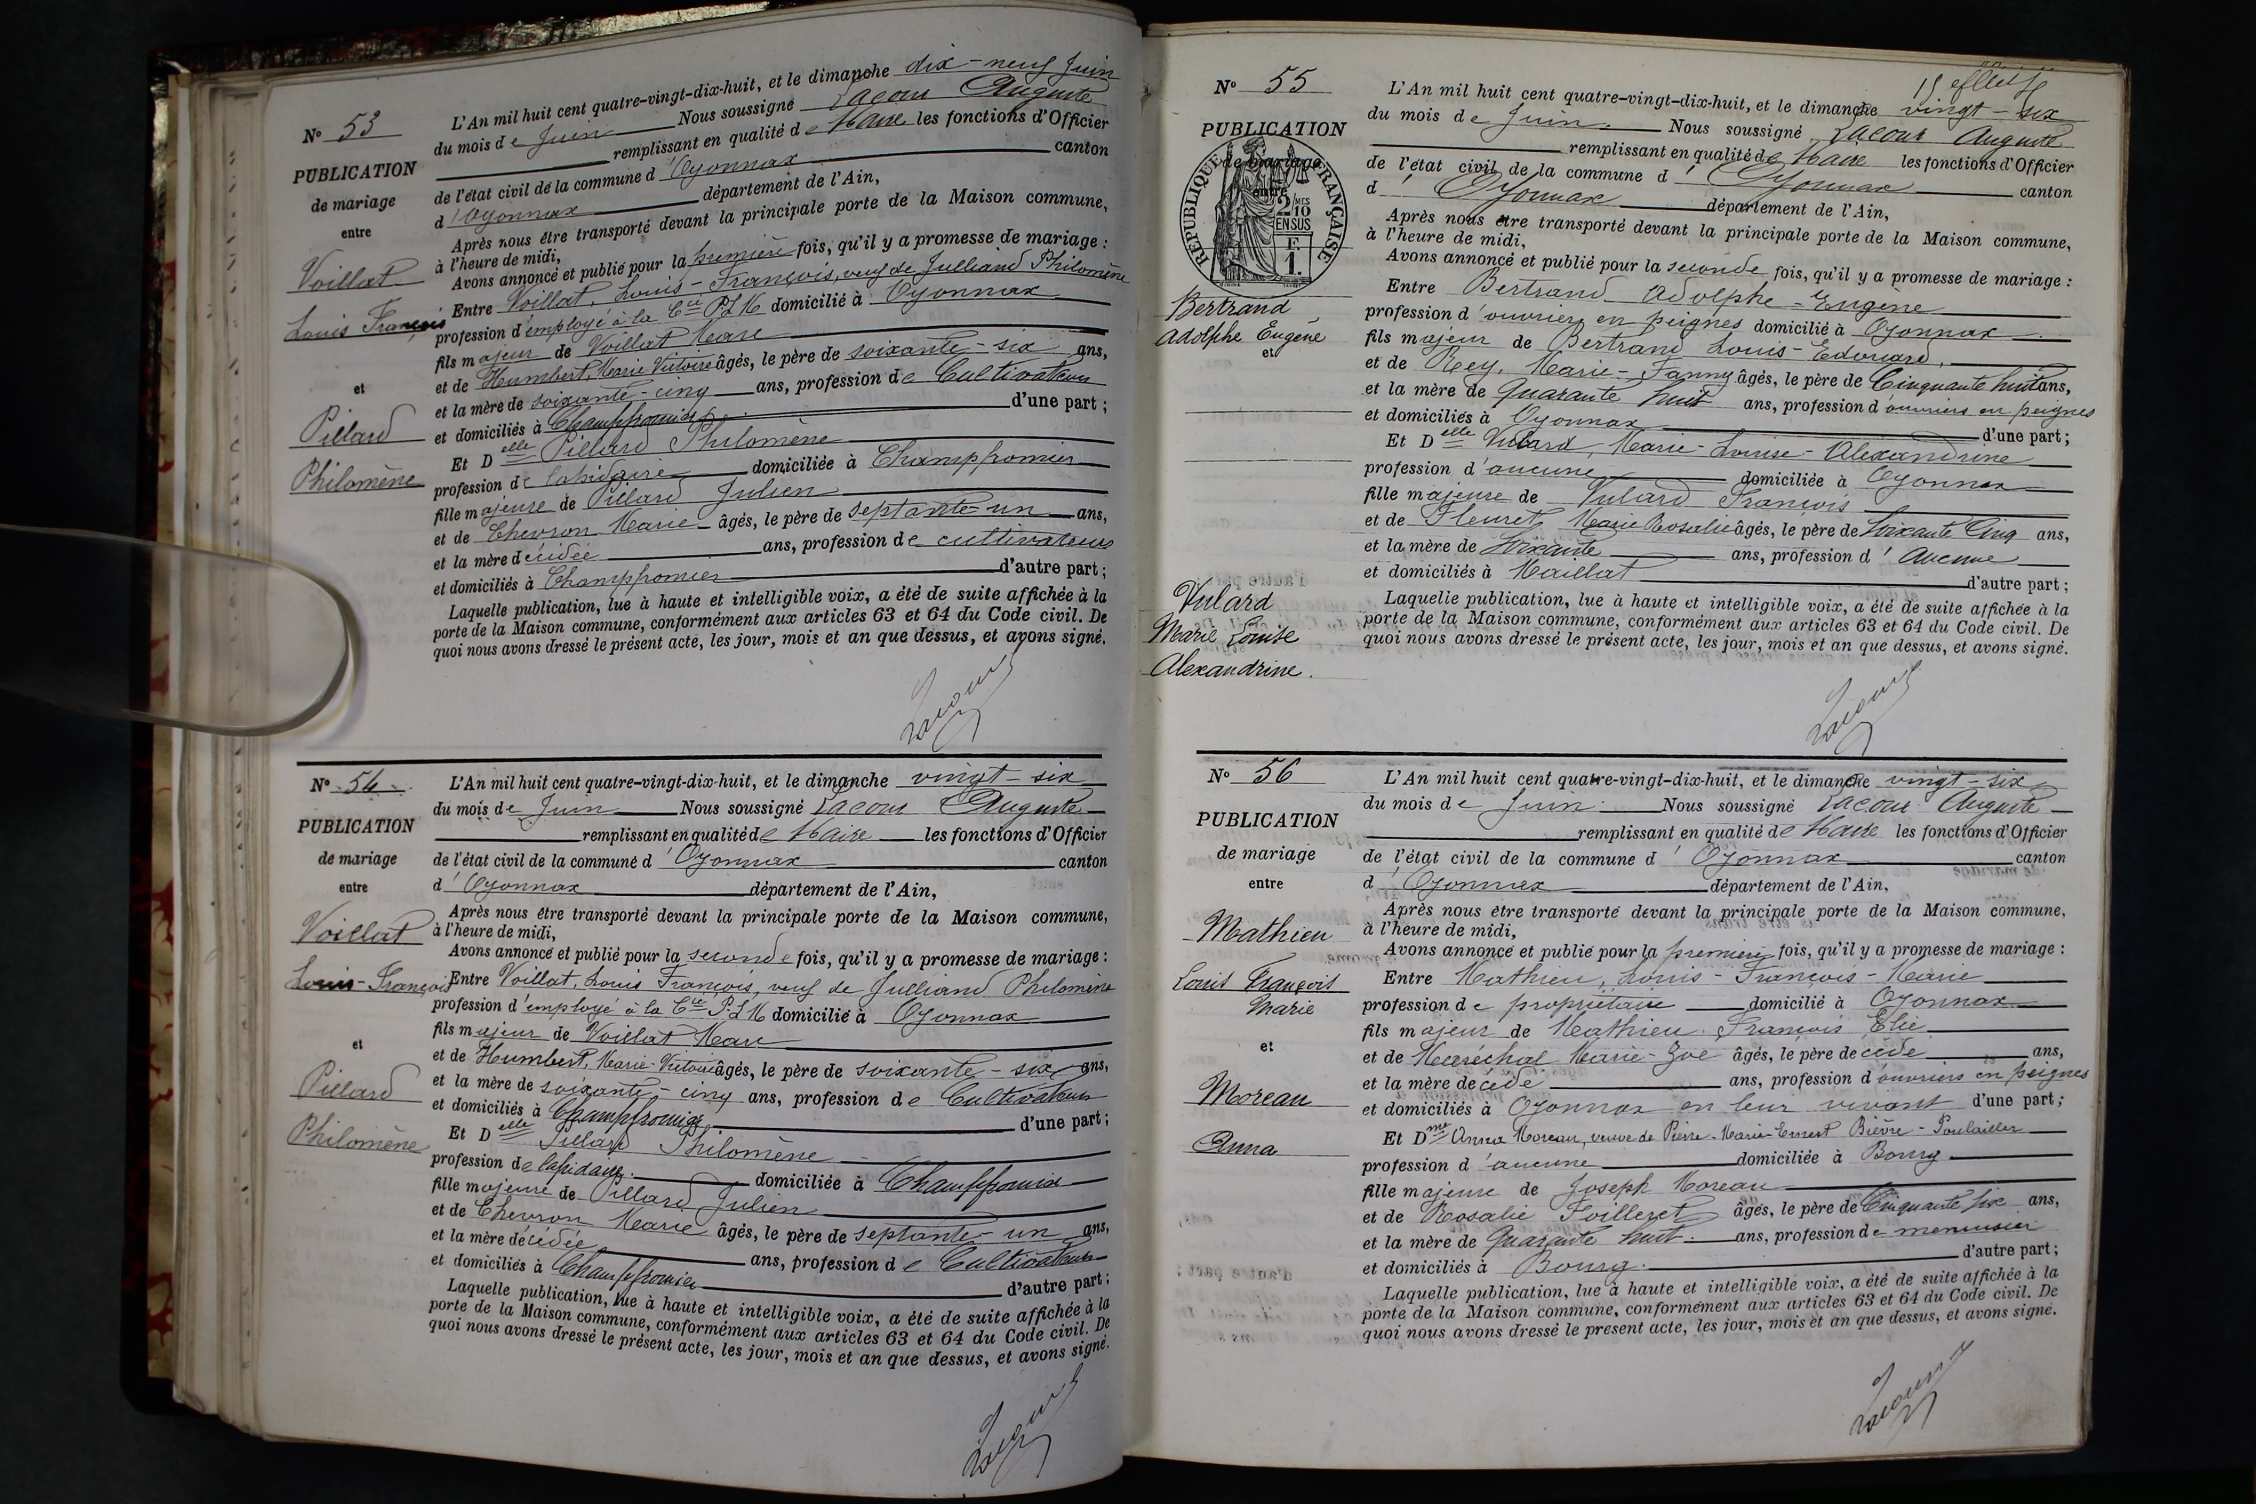 N° 53
PUBLICATION
de mariage
entre
Voillat
Louis François
et
Pillard
Philomène
L'An mil huit cent quatre-vingt-dix-huit, et le dimanche dix-neuf Juin
du mois de Juin Nous soussigné Lacour Auguste
remplissant en qualité de Maire les fonctions d'Officier
de l'état civil de la commune d'Oyonnax canton
d'Oyonnax département de l'Ain,
Après nous être transporté devant la principale porte de la Maison commune,
à l'heure de midi,
Avons annoncé et publié pour la première fois, qu'il y a promesse de mariage :
Entre Voillat, Louis-François, veuf de Julliand Philomène
profession d'employé à la Cie P.L.M domicilié à Oyonnax
fils majeur de Voillat Marc
et de Humbert, Marie Victoire âgés, le père de soixante-six ans,
et la mère de soixante-cinq ans, profession de Cultivateurs
et domiciliés à Champfromier d'une part ;
Et Delle Pillard Philomène
profession de lapidaire domiciliée à Champfromier
fille majeure de Pillard Julien
et de Chevron Marie âgés, le père de septante-un ans,
et la mère décédée ans, profession de cultivateurs
et domiciliés à Champfromier d'autre part ;
Laquelle publication, lue à haute et intelligible voix, a été de suite affichée à la
porte de la Maison commune, conformément aux articles 63 et 64 du Code civil. De
quoi nous avons dressé le présent acte, les jour, mois et an que dessus, et avons signé.
Lacour
N° 54
PUBLICATION
de mariage
entre
Voillat
Louis-François
et
Pillard
Philomène
L'An mil huit cent quatre-vingt-dix-huit, et le dimanche vingt-six
du mois de Juin Nous soussigné Lacour Auguste
remplissant en qualité de Maire les fonctions d'Officier
de l'état civil de la commune d'Oyonnax canton
d'Oyonnax département de l'Ain,
Après nous être transporté devant la principale porte de la Maison commune,
à l'heure de midi,
Avons annoncé et publié pour la seconde fois, qu'il y a promesse de mariage :
Entre Voillat, Louis François, veuf de Julliand Philomène
profession d'employé à la Cie P.L.M domicilié à Oyonnax
fils majeur de Voillat Marc
et de Humbert, Marie-Victoire âgés, le père de soixante-six ans,
et la mère de soixante-cinq ans, profession de Cultivateurs
et domiciliés à Champfromier d'une part ;
Et Delle Pillard Philomène
profession de lapidaire domiciliée à Champfromier
fille majeure de Pillard Julien
et de Chevron Marie âgés, le père de septante-un ans,
et la mère décédée ans, profession de Cultivateurs
et domiciliés à Champfromier d'autre part ;
Laquelle publication, lue à haute et intelligible voix, a été de suite affichée à la
porte de la Maison commune, conformément aux articles 63 et 64 du Code civil. De
quoi nous avons dressé le présent acte, les jour, mois et an que dessus, et avons signé.
Lacour
N° 55
PUBLICATION
de mariage
entre
RÉPUBLIQUE FRANÇAISE
2/10 MES
EN SUS
F.
1.
Bertrand
Adolphe Eugène
et
Vulard
Marie Louise
Alexandrine.
L'An mil huit cent quatre-vingt-dix-huit, et le dimanche vingt-six
du mois de Juin Nous soussigné Lacour Auguste
remplissant en qualité de Maire les fonctions d'Officier
de l'état civil de la commune d'Oyonnax canton
d'Oyonnax département de l'Ain,
Après nous être transporté devant la principale porte de la Maison commune,
à l'heure de midi,
Avons annoncé et publié pour la seconde fois, qu'il y a promesse de mariage :
Entre Bertrand Adolphe-Eugène
profession d'ouvrier en peignes domicilié à Oyonnax
fils majeur de Bertrand Louis-Edouard,
et de Rey, Marie-Fanny âgés, le père de Cinquante huit ans,
et la mère de Quarante huit ans, profession d'ouvriers en peignes
et domiciliés à Oyonnax d'une part ;
Et Delle Vulard, Marie-Louise-Alexandrine
profession d'aucune domiciliée à Oyonnax
fille majeure de Vulard François
et de Fleuret Marie Rosalie âgés, le père de Soixante Cinq ans,
et la mère de Soixante ans, profession d'Aucune
et domiciliés à Maillat d'autre part ;
Laquelle publication, lue à haute et intelligible voix, a été de suite affichée à la
porte de la Maison commune, conformément aux articles 63 et 64 du Code civil. De
quoi nous avons dressé le présent acte, les jour, mois et an que dessus, et avons signé.
Lacour
N° 56
PUBLICATION
de mariage
entre
Mathieu
Louis François
Marie
et
Moreau
Anna
L'An mil huit cent quatre-vingt-dix-huit, et le dimanche vingt-six
du mois de Juin Nous soussigné Lacour Auguste
remplissant en qualité de Maire les fonctions d'Officier
de l'état civil de la commune d'Oyonnax canton
d'Oyonnax département de l'Ain,
Après nous être transporté devant la principale porte de la Maison commune,
à l'heure de midi,
Avons annoncé et publié pour la première fois, qu'il y a promesse de mariage :
Entre Mathieu, Louis-François-Marie
profession de propriétaire domicilié à Oyonnax
fils majeur de Mathieu François Elie
et de Maréchal Marie-Zoé âgés, le père décédé ans,
et la mère décédé ans, profession d'ouvriers en peignes
et domiciliés à Oyonnax en leur vivant d'une part ;
Et Dme Anna Moreau, veuve de Pierre-Marie-Ernest Bièvre-Poulailler
profession d'aucune domiciliée à Bourg
fille majeure de Joseph Moreau
et de Rosalie Foilleret âgés, le père de Cinquante six ans,
et la mère de Quarante huit ans, profession de menuisier
et domiciliés à Bourg. d'autre part ;
Laquelle publication, lue à haute et intelligible voix, a été de suite affichée à la
porte de la Maison commune, conformément aux articles 63 et 64 du Code civil. De
quoi nous avons dressé le présent acte, les jour, mois et an que dessus, et avons signé.
Lacour